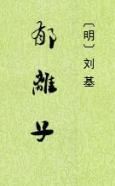 〔明〕刘基
郁離子